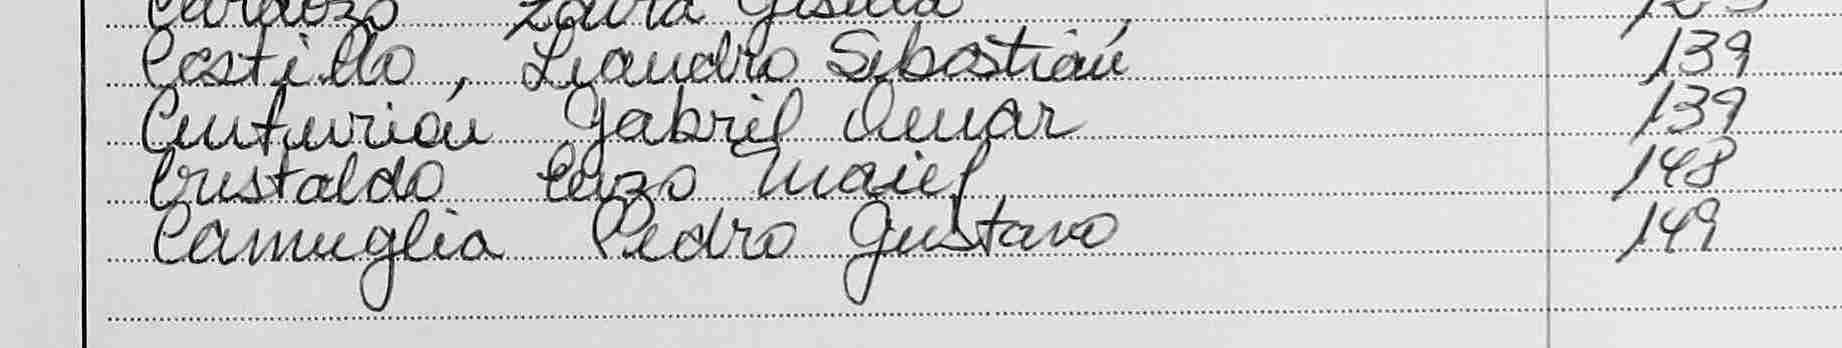 Cardozo Laura Gisella
Castillo, Leandro Sebastián 139
Centurión Gabriel Omar 139
Cristaldo Enzo Maiel 148
Camuglia Pedro Gustavo 149